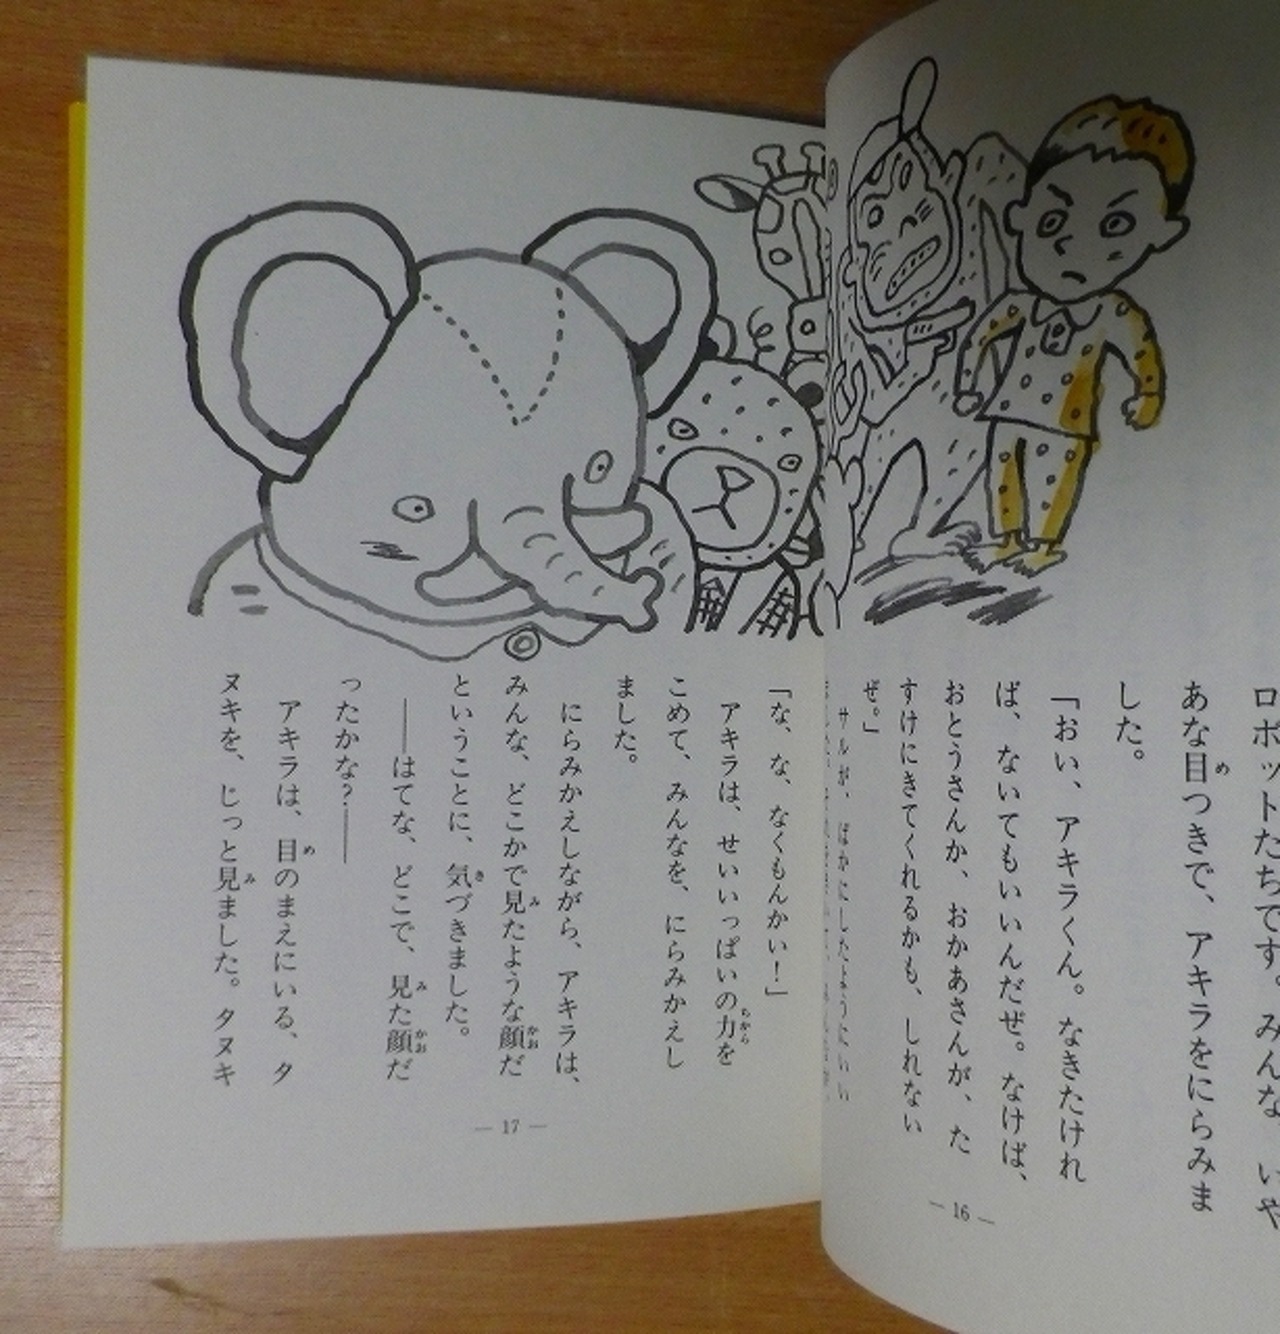 ロボットたちです。みんな、いや
あな目つきで、アキラをにらみま
した。
「おい、アキラくん。なきたけれ
ば、ないてもいいんだぜ。なけば、
おとうさんか、おかあさんが、た
すけにきてくれるかも、しれない
ぜ。」
サルが、ばかにしたようにいい
— 16 —
「な、な、なくもんかい！」
アキラは、せいいっぱいの力を
こめて、みんなを、にらみかえし
ました。
にらみかえしながら、アキラは、
みんな、どこかで見たような顔だ
ということに、気づきました。
——はてな、どこで、見た顔だ
ったかな？——
アキラは、目のまえにいる、タ
ヌキを、じっと見ました。タヌキ
— 17 —